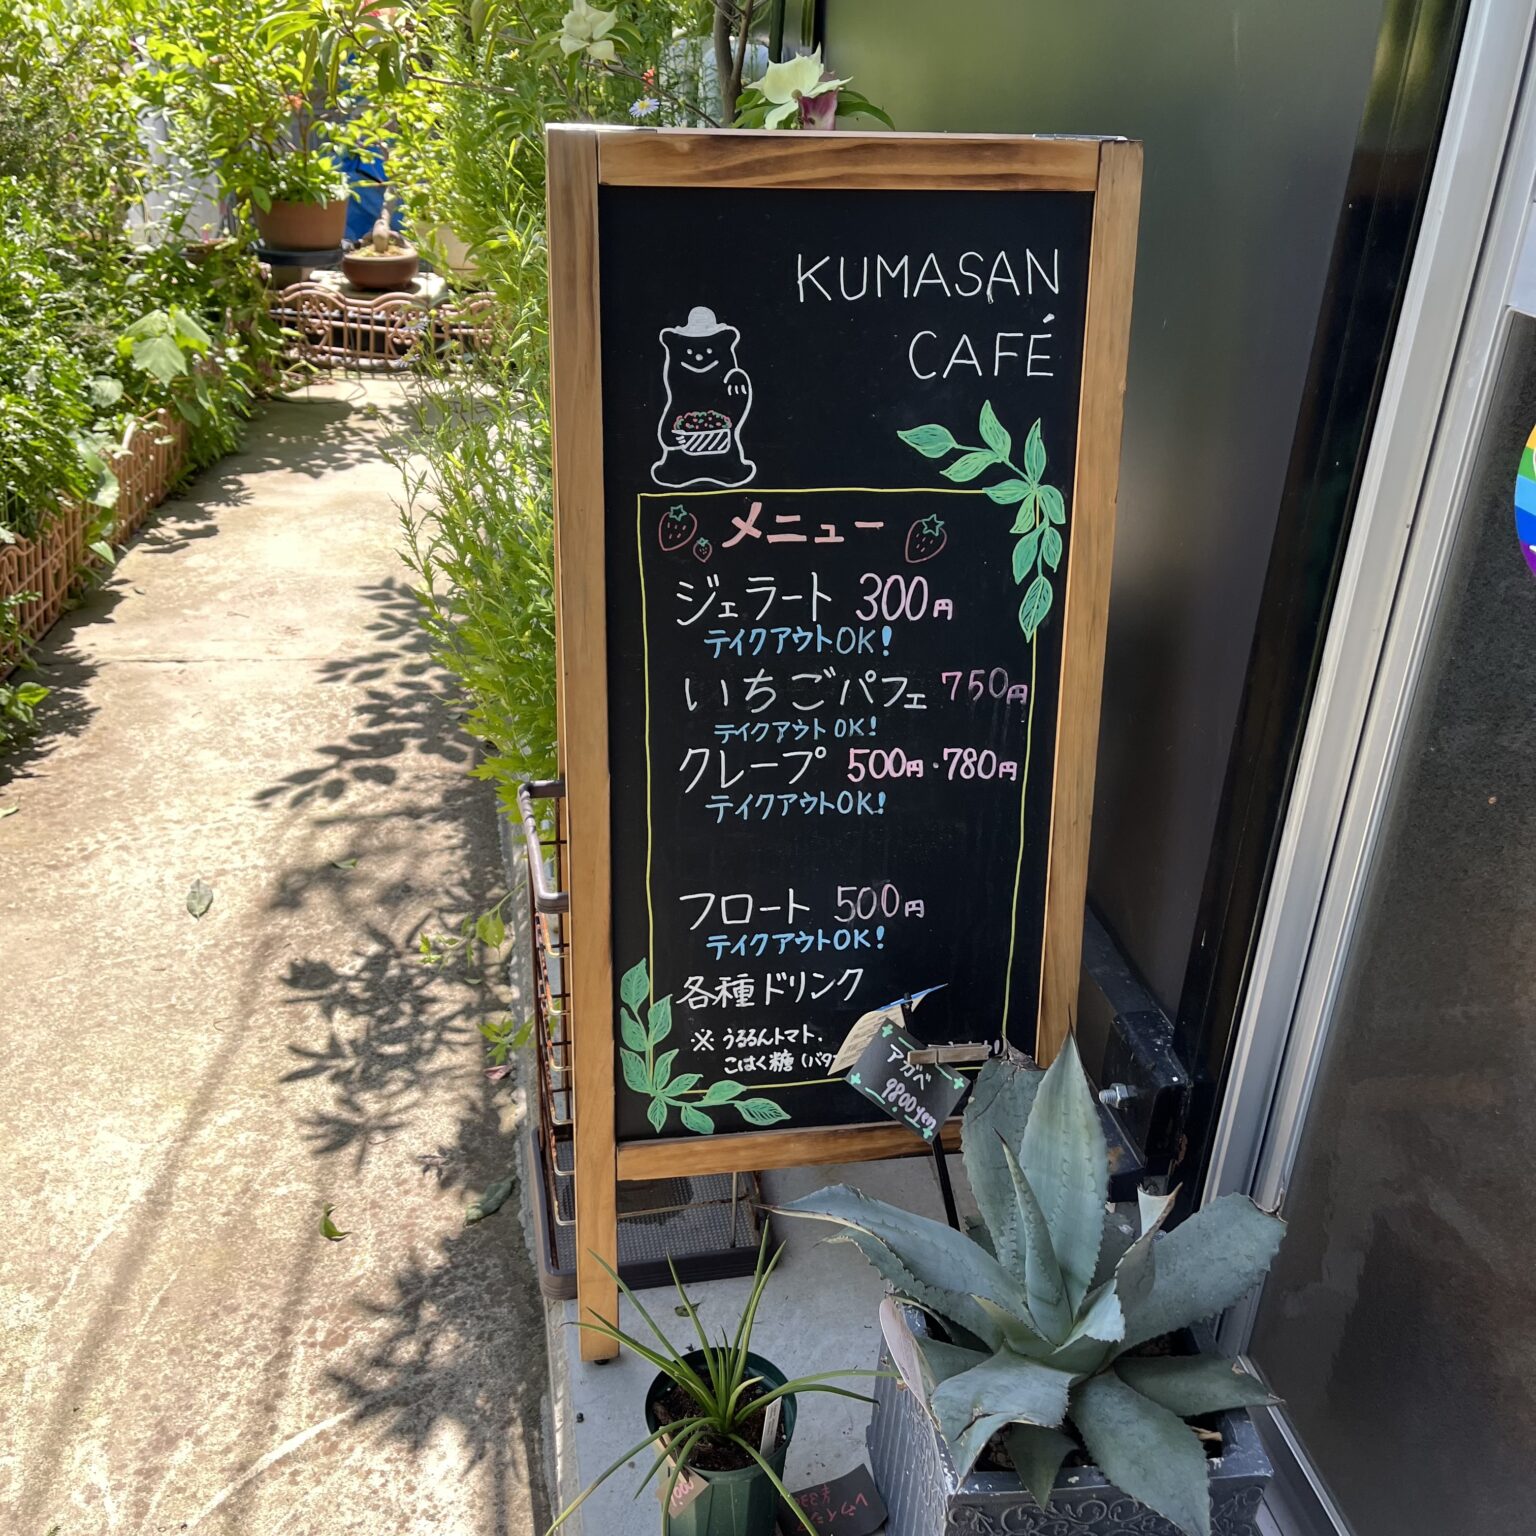 KUMASAN
CAFÉ
メニュー
ジェラート 300円
テイクアウトOK!
いちごパフェ 750円
テイクアウトOK!
クレープ 500円・780円
テイクアウトOK!
フロート 500円
テイクアウトOK!
各種ドリンク
※ うるるんトマト.
こはく糖(バタ
アガベ
9800yen